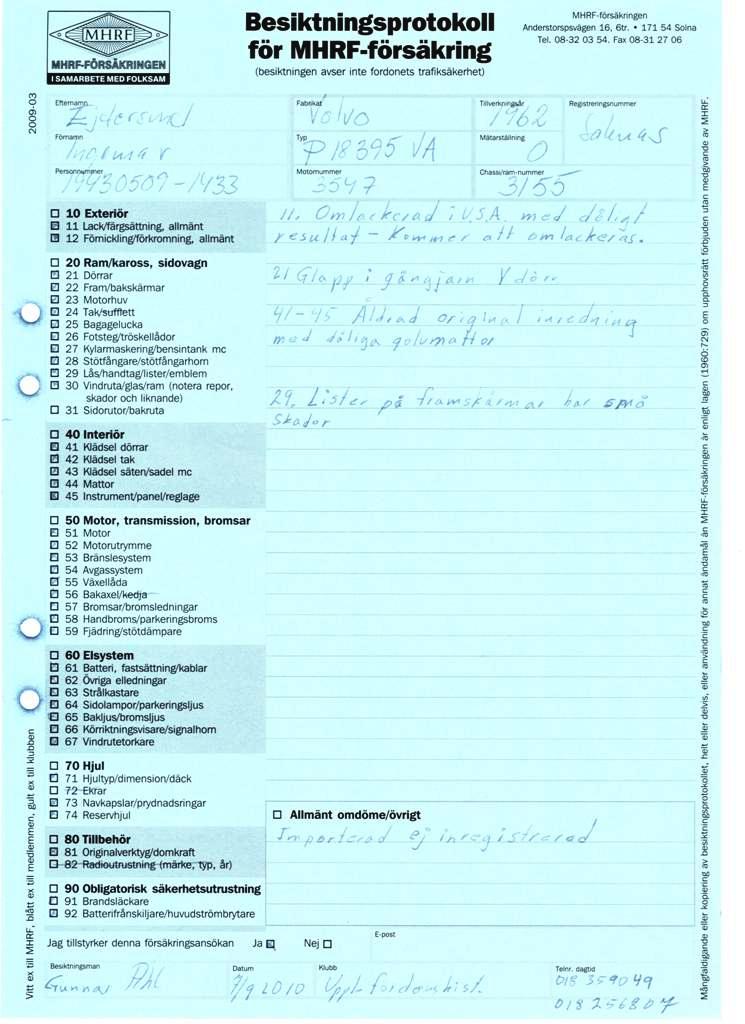 MHRF
MHRF-FÖRSÄKRINGEN
I SAMARBETE MED FOLKSAM
Besiktningsprotokoll
för MHRF-försäkring
(besiktningen avser inte fordonets trafiksäkerhet)
MHRF-försäkringen
Anderstorpsvägen 16, 6tr. • 171 54 Solna
Tel. 08-32 03 54. Fax 08-31 27 06
2009-03
Efternamn
Ejdersund
Fabrikat
Volvo
Tillverkningsår
1962
Registreringsnummer
Saknas
Förnamn
Ingemar
Typ
P18395 VA
Mätarställning
0
Personnummer
19430509-1433
Motornummer
3547
Chassi/ram-nummer
3155
10 Exteriör
11 Lack/färgsättning, allmänt
12 Förnickling/förkromning, allmänt
11. Omlackerad i U.S.A. med dåligt
resultat - Kommer att omlackeras.
20 Ram/kaross, sidovagn
21 Dörrar
22 Fram/bakskärmar
23 Motorhuv
24 Tak/sufflett
25 Bagagelucka
26 Fotsteg/tröskellådor
27 Kylarmaskering/bensintank mc
28 Stötfångare/stötfångarhorn
29 Lås/handtag/lister/emblem
30 Vindruta/glas/ram (notera repor,
skador och liknande)
31 Sidorutor/bakruta
21 Glapp i gångjärn V dörr
41-45 Åldrad original inredning
med dåliga golvmattor
29. Lister på framskärmar har små
skador
40 Interiör
41 Klädsel dörrar
42 Klädsel tak
43 Klädsel säten/sadel mc
44 Mattor
45 Instrument/panel/reglage
50 Motor, transmission, bromsar
51 Motor
52 Motorutrymme
53 Bränslesystem
54 Avgassystem
55 Växellåda
56 Bakaxel/kedja
57 Bromsar/bromsledningar
58 Handbroms/parkeringsbroms
59 Fjädring/stötdämpare
60 Elsystem
61 Batteri, fastsättning/kablar
62 Övriga elledningar
63 Strålkastare
64 Sidolampor/parkeringsljus
65 Bakljus/bromsljus
66 Körriktningsvisare/signalhorn
67 Vindrutetorkare
70 Hjul
71 Hjultyp/dimension/däck
72 Ekrar
73 Navkapslar/prydnadsringar
74 Reservhjul
80 Tillbehör
81 Originalverktyg/domkraft
82 Radioutrustning (märke, typ, år)
90 Obligatorisk säkerhetsutrustning
91 Brandsläckare
92 Batterifrånskiljare/huvudströmbrytare
Allmänt omdöme/övrigt
Importerad ej inregistrerad
Jag tillstyrker denna försäkringsansökan Ja Nej
E-post
Besiktningsman
Gunnar Ahl
Datum
7/9 2010
Klubb
Uppl. fordonshist.
Telnr. dagtid
018 359049
018 256807
Vitt ex till MHRF, blått ex till medlemmen, gult ex till klubben
Mångfaldigande eller kopiering av besiktningsprotokollet, helt eller delvis, eller användning för annat ändamål än MHRF-försäkringen är enligt lagen (1960:729) om upphovsrätt förbjuden utan medgivande av MHRF.